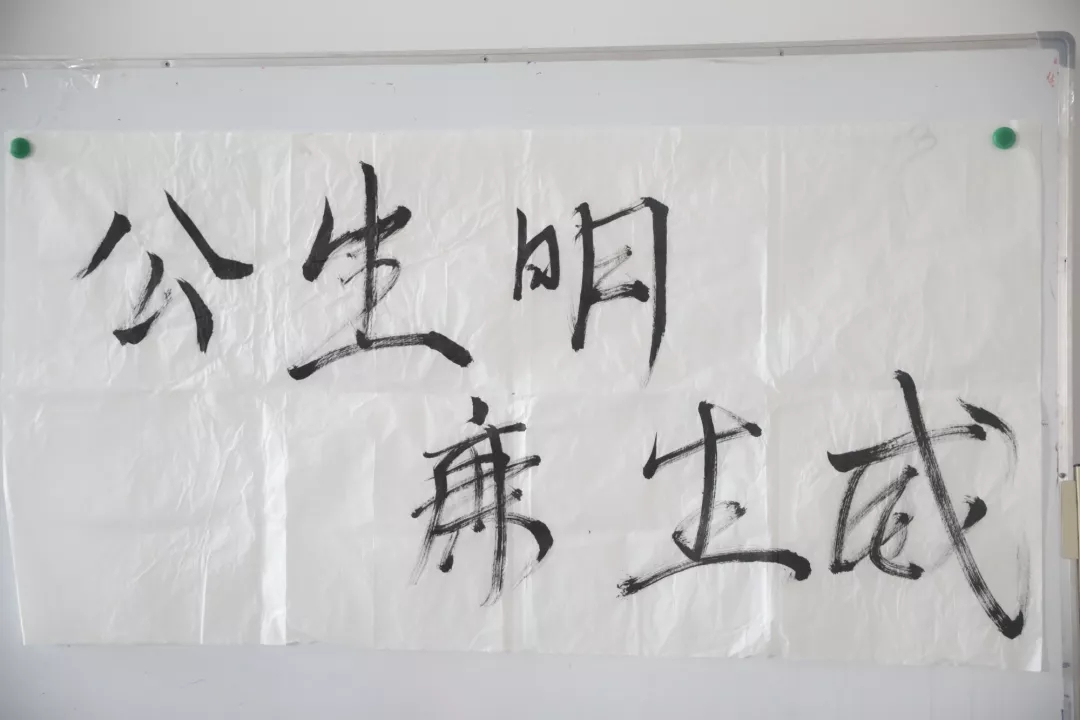 公生明
廉生威